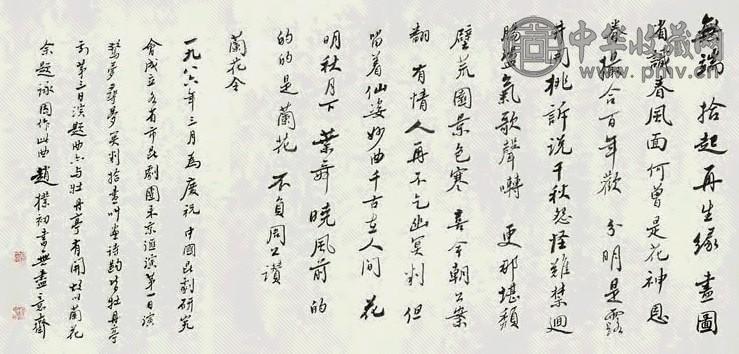 無端拾起再生緣 畫圖
省識春風面何曾是花神恩
眷撮合百年歡 分明是露
井桃訴說千秋怨怪難禁迴
腸盪氣歌聲囀 更那堪頹
壁荒園景色寒 喜今朝公案
翻 有情人再不乞幽冥判但
留着仙姿妙曲千古在人間 花
明秋月下 葉舞曉風前 的
的的是蘭花 不負周公讚
蘭花令
一九八六年三月為慶祝中國崑劇研究
會成立各省市崑劇團來京滙演第一日演
驚夢尋夢冥判拾畫叫畫詩牡丹亭
第三日演題曲亦與牡丹亭有關故以蘭花
題詠因作此曲 趙樸初書無盡意齋
中华收藏网